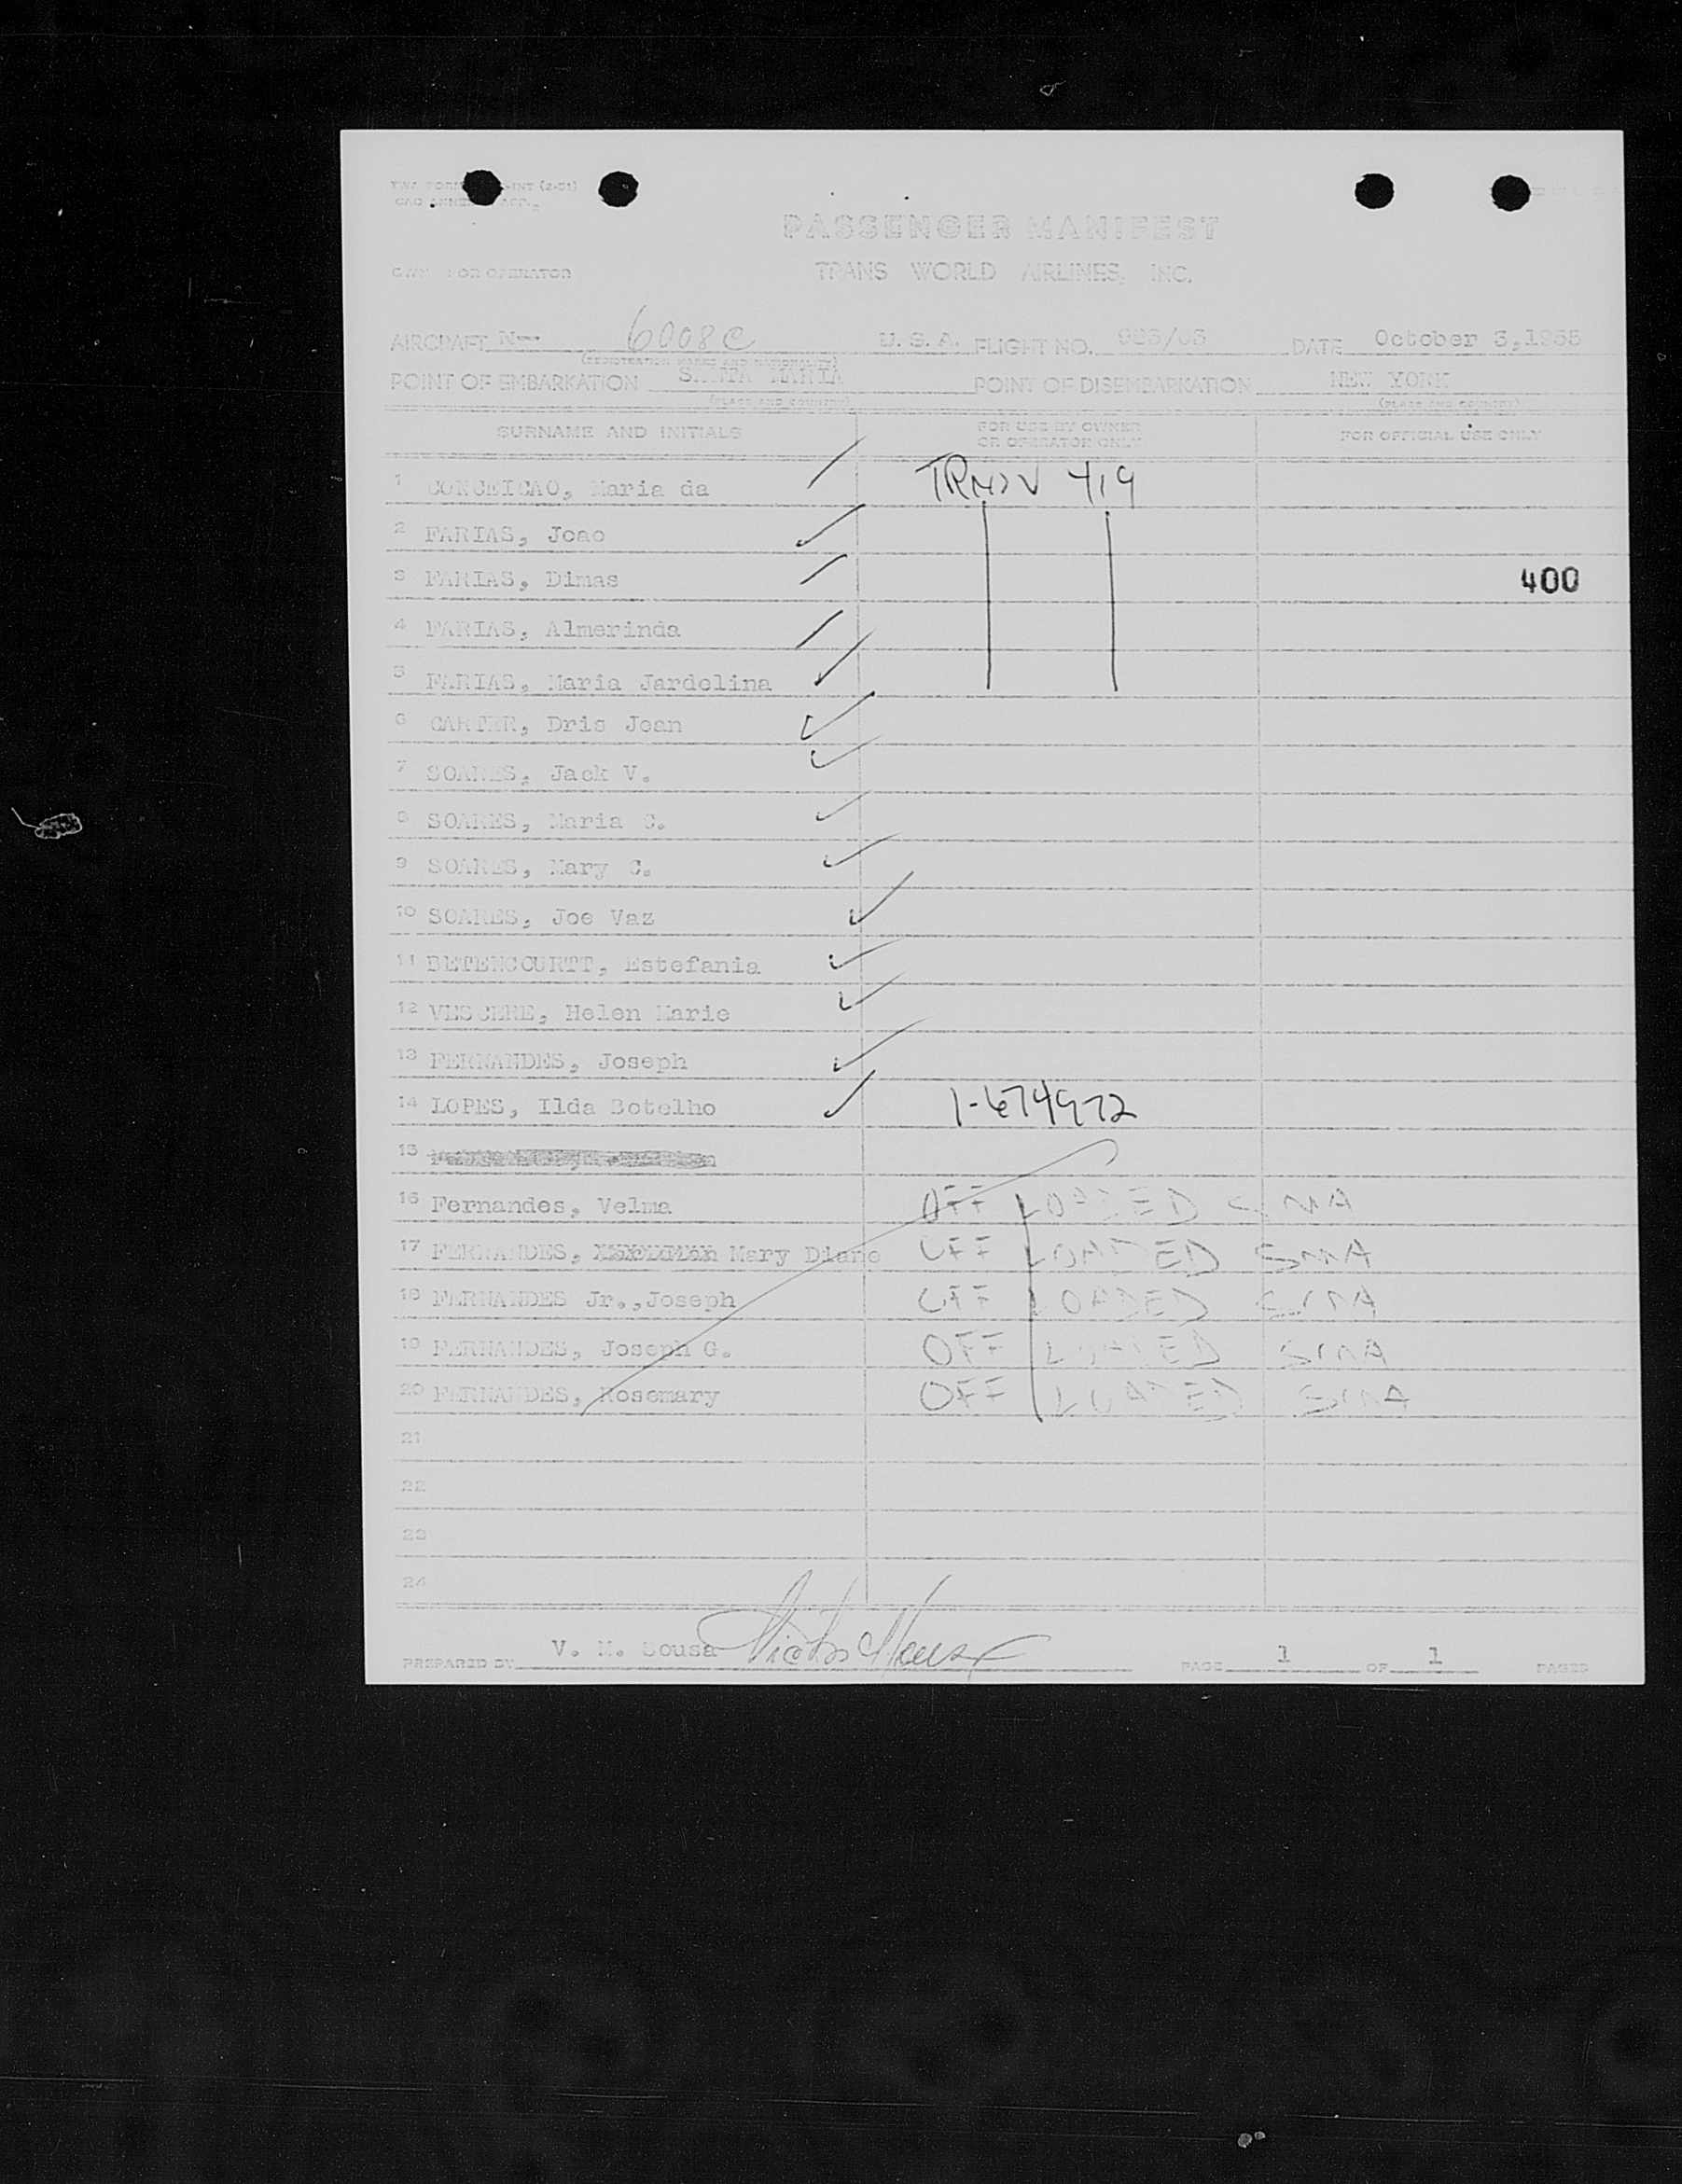 PASSENGER MANIFEST
OWNER OR OPERATOR TRANS WORLD AIRLINES, INC.
AIRCRAFT N 6008C U.S.A. FLIGHT NO. DATE October 3,1955
(REGISTRATION MARKS AND NATIONALITY)
POINT OF EMBARKATION SANTA MARIA POINT OF DISEMBARKATION NEW YORK
(PLACE AND COUNTRY) (PLACE AND COUNTRY)
SURNAME AND INITIALS FOR USE BY OWNER OR OPERATOR ONLY FOR OFFICIAL USE ONLY
1 CONCEICAO, Maria da 419
2 FARIAS, Joao
3 FARIAS, Dimas 400
4 FARIAS, Almerinda
5 FARIAS, Maria Jardelina
6 CARTER, Dris Jean
7 SOARES, Jack V.
8 SOARES, Maria C.
9 SOARES, Mary C.
10 SOARES, Joe Vaz
11 BETENCOURTT, Estefania
12 VESCERE, Helen Marie
13 FERNANDES, Joseph
14 LOPES, Ilda Botelho 1-674972
15
16 Fernandes, Velma OFF LOADED SMA
17 FERNANDES, Mary Diane OFF LOADED SMA
18 FERNANDES Jr.,Joseph OFF LOADED SMA
19 FERNANDES, Joseph G. OFF LOADED SMA
20 FERNANDES, Rosemary OFF LOADED SMA
21
22
23
24
PREPARED BY V. M. Sousa PAGE 1 OF 1 PAGES